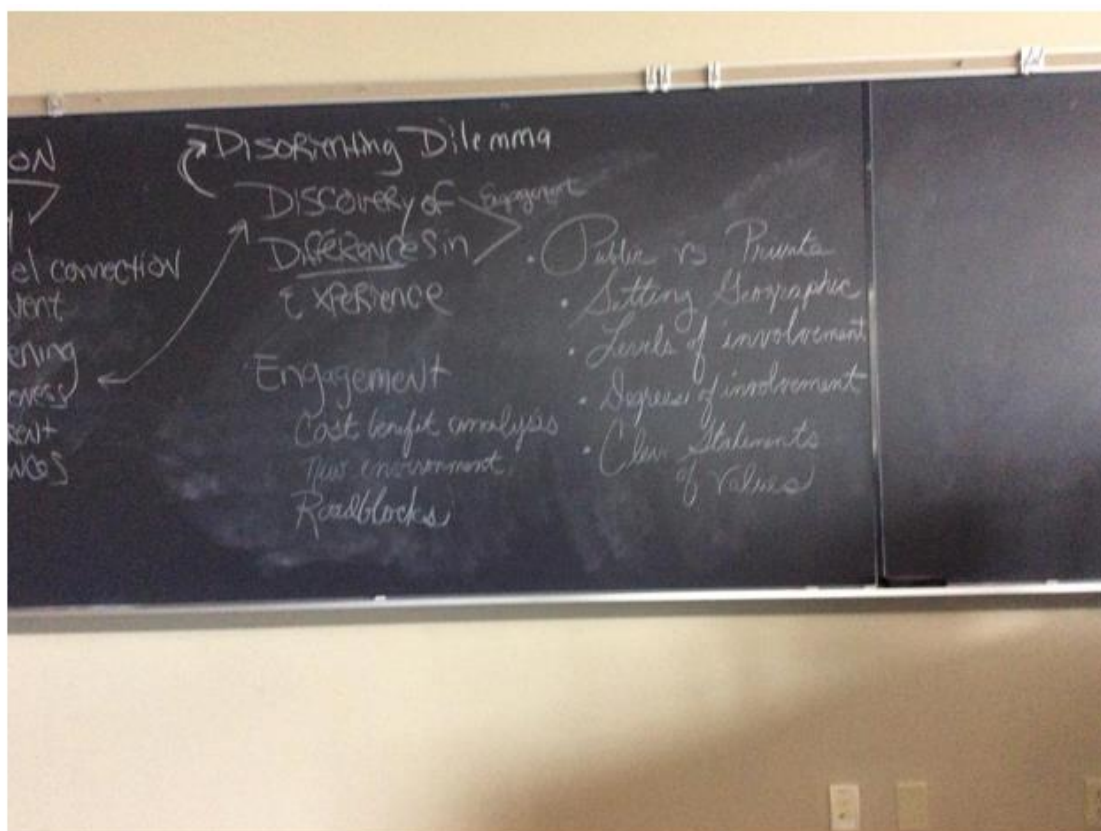 ON
el connection
vent
ening
eness
ent
nces
Disorienting Dilemma
Discovery of Engagement
Differences in
Experience
Engagement
Cost benefit analysis
New environment
Roadblocks
• Public vs Private
• Setting Geographic
• Levels of involvement
• Degrees of involvement
• Clear Statements
of Values